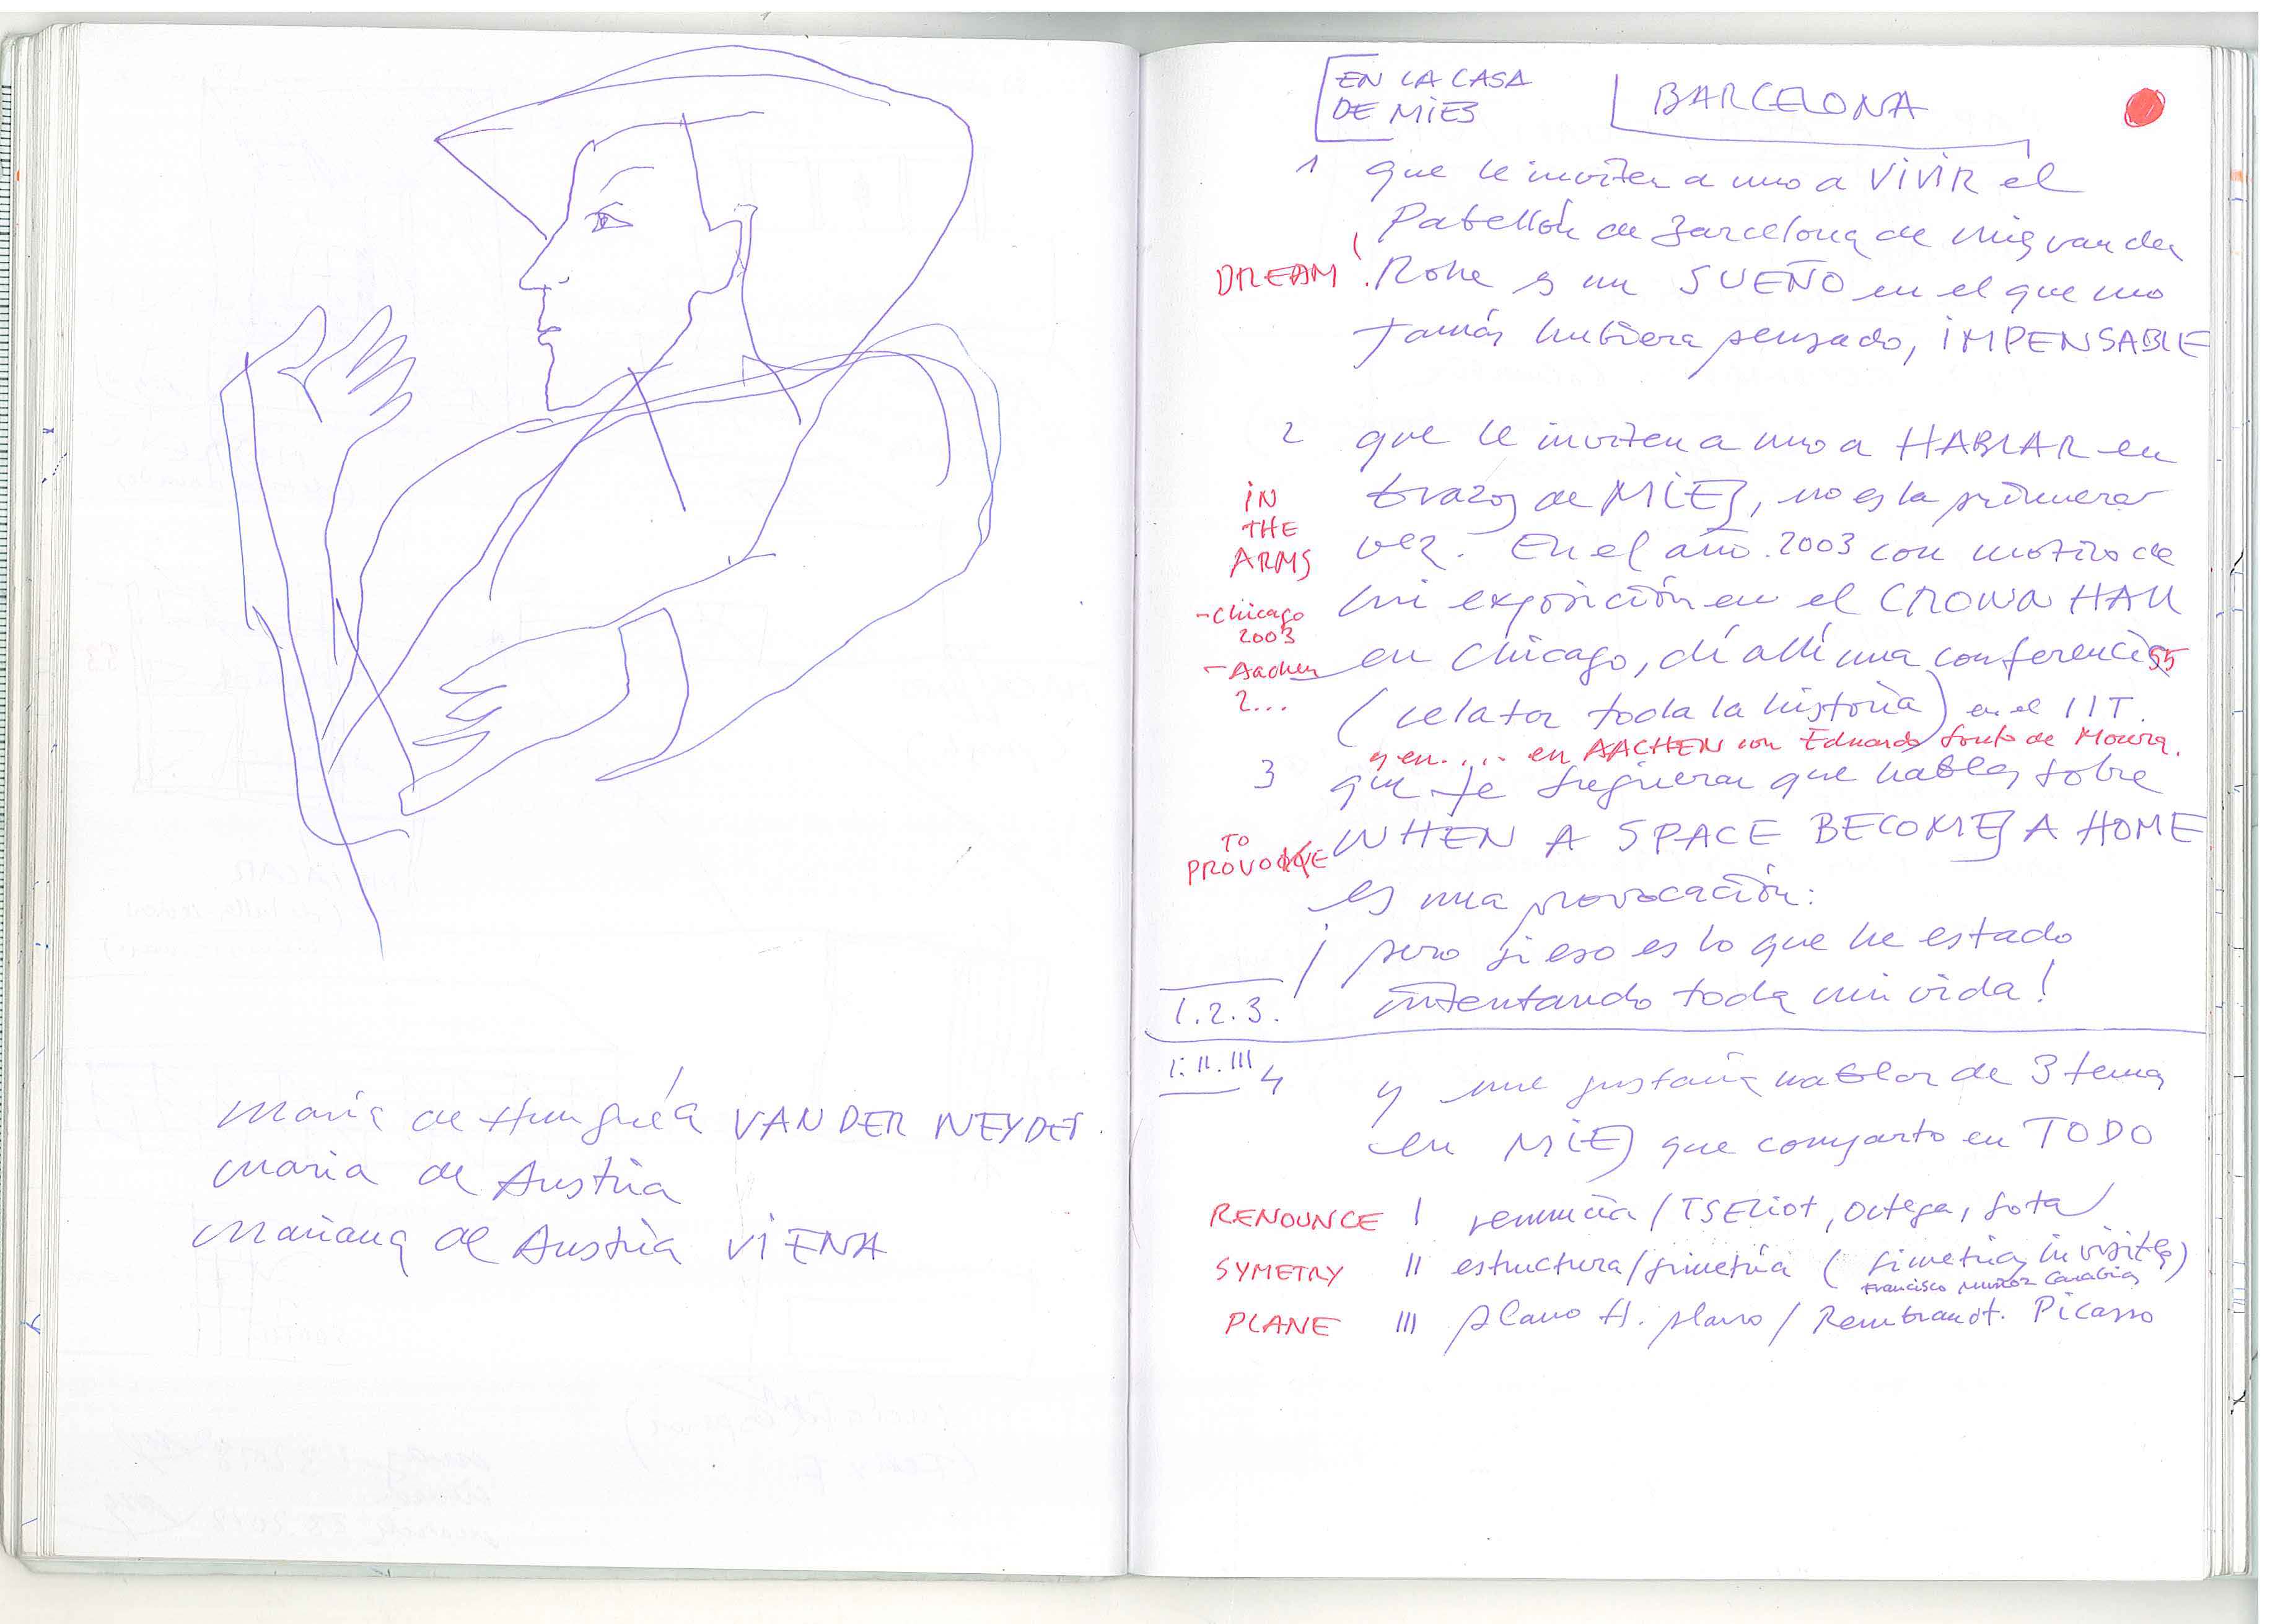 Maria de Hungría VAN DER WEYDEN.
Maria de Austria
Mariana de Austria VIENA
EN LA CASA
DE MIES
BARCELONA
1 que le inviten a uno a VIVIR el
Pabellón de Barcelona de Mies van der
DREAM! Rohe es un SUEÑO en el que uno
jamás hubiera pensado, IMPENSABLE
2 que le inviten a uno a HABLAR en
IN
THE
ARMS
brazos de MIES, no es la primera
vez. En el año 2003 con motivo de
-Chicago
2003
mi exposición en el CROWN HALL
- Aachen
2...
en Chicago, dí allí una conferencia 55
(relatar toda la historia) en el IIT.
y en.... en AACHEN con Eduardo Souto de Moura.
3 que te sugieran que hables sobre
TO
PROVOKE
WHEN A SPACE BECOMES A HOME
es una provocación:
¡ pero si eso es lo que he estado
intentando toda mi vida!
1.2.3.
I. II. III
4 y me gustaría hablar de 3 temas
en MIES que comparto en TODO
RENOUNCE I renuncia / TS Eliot, Ortega, Sota
SYMETRY II estructura/simetría (simetrías invisibles)
Francisco Muñoz
PLANE III plano H. plano / Rembrandt. Picasso